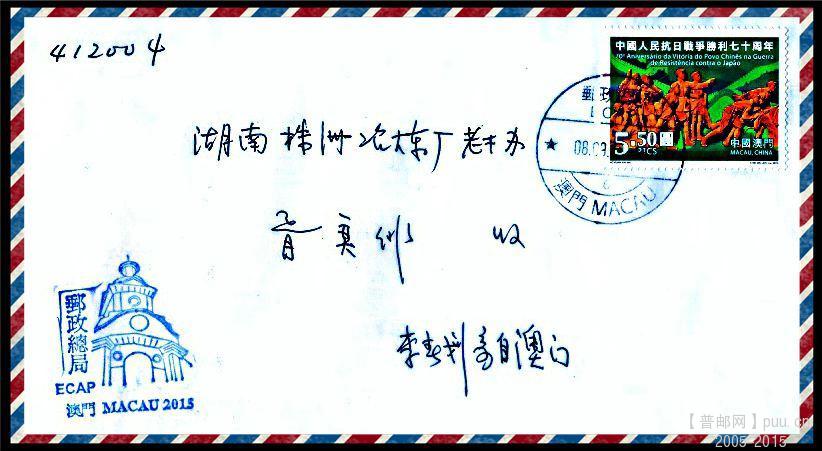 412004
中國人民抗日戰爭勝利七十周年
70º Aniversário da Vitória do Povo Chinês na Guerra
de Resistência contra o Japão
5.50圓
PTCS
中國澳門
MACAU, CHINA
郵政
08.09
澳門 MACAU
湖南株洲冶炼厂老干办
收
自澳门
郵政總局
ECAP
澳門 MACAU 2015
【普邮网】puu.cn
2005-2015